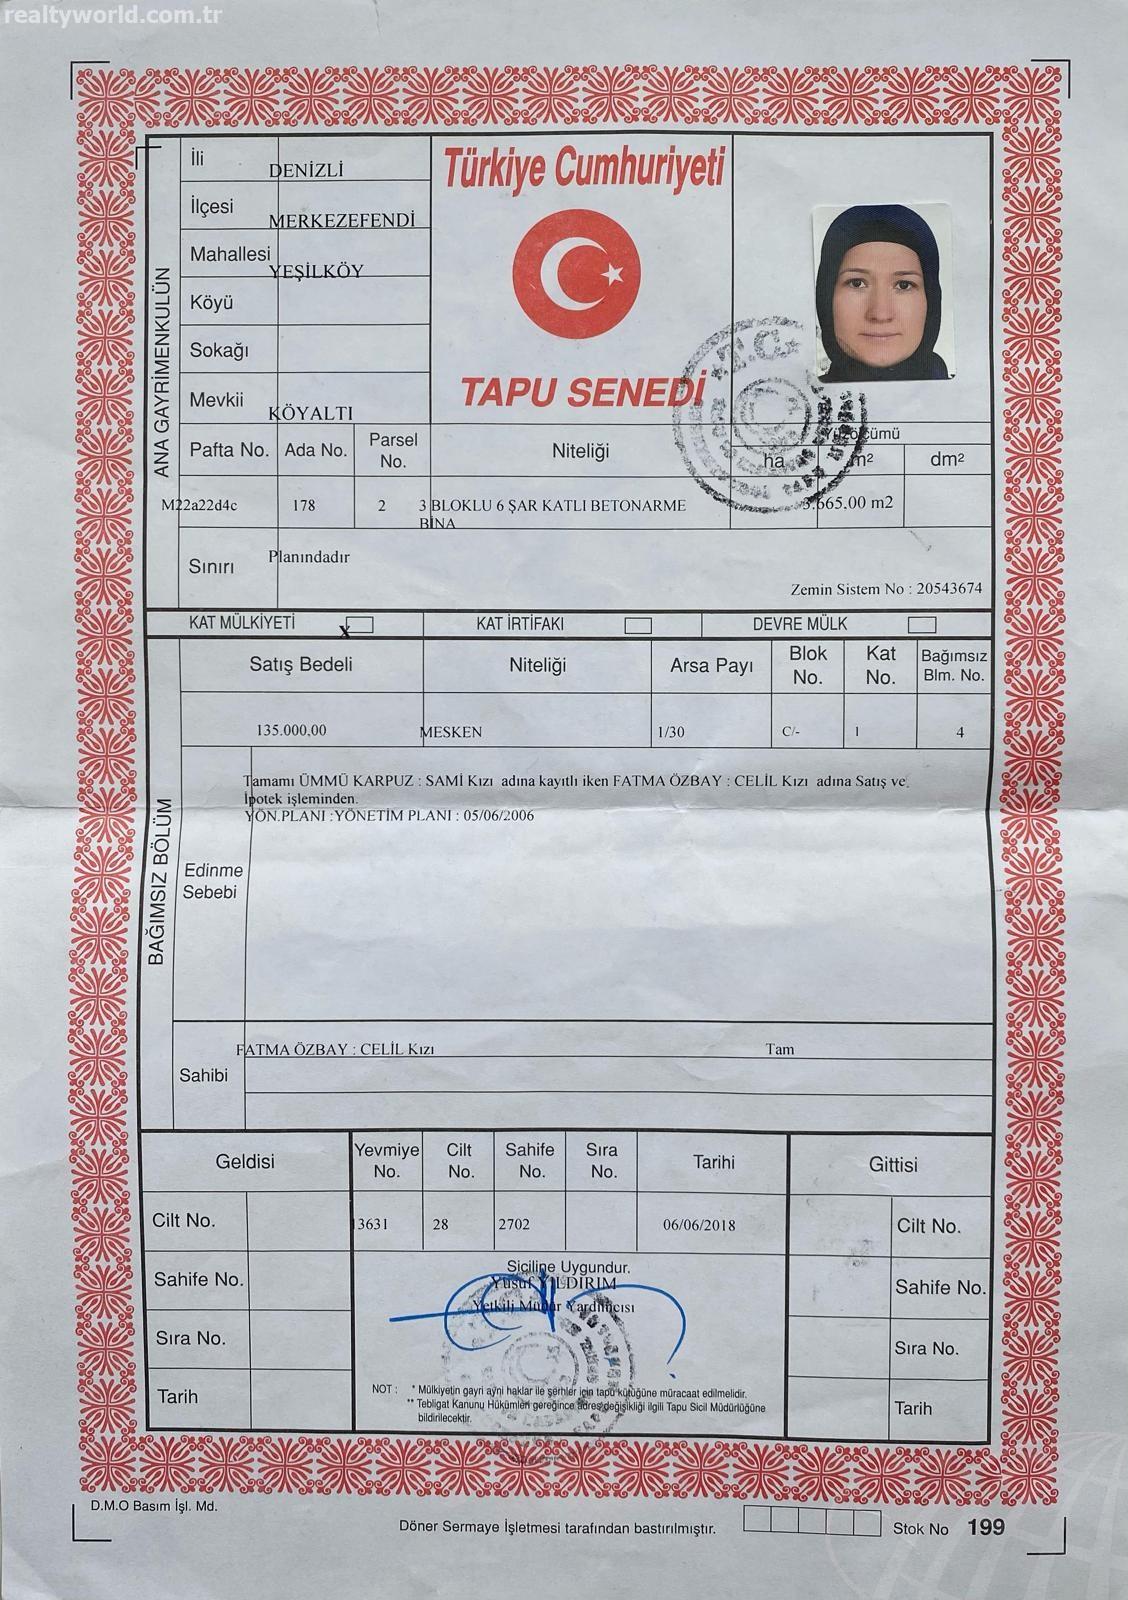 realtyworld.com.tr
ANA GAYRİMENKULÜN
İli DENİZLİ
İlçesi MERKEZEFENDİ
Mahallesi YEŞİLKÖY
Köyü
Sokağı
Mevkii KÖYALTI
Türkiye Cumhuriyeti
TAPU SENEDİ
T.C.
Pafta No. Ada No. Parsel No. Niteliği Yüzölçümü
ha m² dm²
M22a22d4c 178 2 3 BLOKLU 6 ŞAR KATLI BETONARME 3.665,00 m2
BİNA
Sınırı Planındadır
Zemin Sistem No : 20543674
KAT MÜLKİYETİ X KAT İRTİFAKI DEVRE MÜLK
BAĞIMSIZ BÖLÜM
Satış Bedeli Niteliği Arsa Payı Blok No. Kat No. Bağımsız Blm. No.
135.000,00 MESKEN 1/30 C/- 1 4
Edinme Sebebi
Tamamı ÜMMÜ KARPUZ : SAMİ Kızı adına kayıtlı iken FATMA ÖZBAY : CELİL Kızı adına Satış ve
İpotek işleminden.
YÖN.PLANI :YÖNETİM PLANI : 05/06/2006
Sahibi
FATMA ÖZBAY : CELİL Kızı Tam
Geldisi Yevmiye No. Cilt No. Sahife No. Sıra No. Tarihi Gittisi
Cilt No. 13631 28 2702 06/06/2018 Cilt No.
Siciline Uygundur.
Yusuf YILDIRIM
Yetkili Müdür Yardımcısı
Sahife No. Sahife No.
Sıra No. Sıra No.
Tarih Tarih
NOT : * Mülkiyetin gayri ayni haklar ile şerhler için tapu kütüğüne müracaat edilmelidir.
** Tebligat Kanunu Hükümleri gereğince adres değişikliği ilgili Tapu Sicil Müdürlüğüne
bildirilecektir.
D.M.O Basım İşl. Md.
Döner Sermaye İşletmesi tarafından bastırılmıştır.
Stok No 199